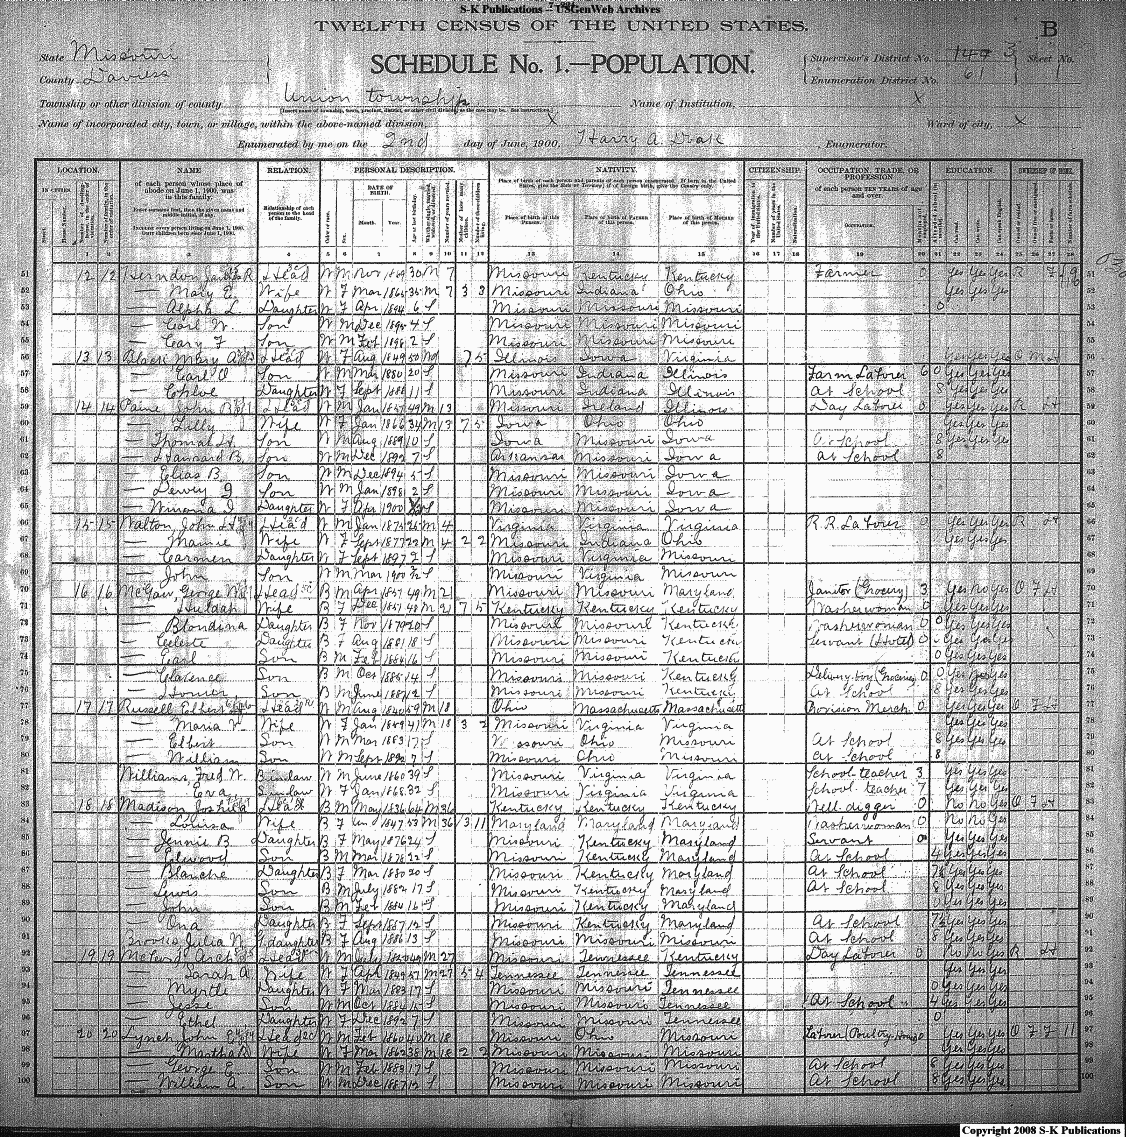 S-K Publications - USGenWeb Archives
TWELFTH CENSUS OF THE UNITED STATES.
B
State Missouri
County Daviess
SCHEDULE No. 1.—POPULATION.
Supervisor's District No. 3
Enumeration District No. 61
Sheet No. 1
Township or other division of county Union township
Name of Institution, X
Name of incorporated city, town, or village, within the above-named division, X
Ward of city, X
Enumerated by me on the 2nd day of June, 1900, Harry A. , Enumerator.
LOCATION. NAME RELATION. PERSONAL DESCRIPTION. NATIVITY. CITIZENSHIP. OCCUPATION, TRADE, OR PROFESSION EDUCATION. OWNERSHIP OF HOME.
of each person whose place of abode on June 1, 1900, was in this family.
Relationship of each person to the head of the family.
DATE OF BIRTH.
Month. Year.
Place of birth of this Person. Place of birth of Father of this person. Place of birth of Mother of this person.
of each person TEN YEARS of age and over.
OCCUPATION.
51 12 12 Herndon, R Head W M Nov 30 M 7 Missouri Kentucky Kentucky Farmer 0 Yes Yes Yes R F
52 — Mary E. Wife W F Mar 1865 35 M 7 3 3 Missouri Indiana Ohio Yes Yes Yes
53 — L. Daughter W F Apr 1894 6 S Missouri Missouri Missouri
54 — Carl W. Son W M Dec 1895 4 S Missouri Missouri Missouri
55 — F Son W M Feb 1898 2 S Missouri Missouri Missouri
56 13 13 Black Mary A Head W F Aug 1849 50 Wd 7 5 Illinois Iowa Virginia Yes Yes Yes O M H
57 — Earl O. Son W M Mar 1880 20 S Missouri Indiana Illinois Farm Laborer 6 Yes Yes Yes
58 — Chloe Daughter W F Sept 1888 11 S Missouri Indiana Illinois At School 8 Yes Yes Yes
59 14 14 Paine John Head W M Jan 49 M 13 Missouri Ireland Illinois Day Laborer Yes Yes Yes R H
60 — Lilly Wife W F Jan 1866 34 M 13 7 5 Iowa Ohio Ohio Yes Yes Yes
61 — Thomas H. Son W M Aug 1889 10 S Iowa Missouri Iowa At School 8 Yes Yes Yes
62 — B. Son W M Dec 1892 7 S Arkansas Missouri Iowa At School 8
63 — Elias B. Son W M Dec 1894 5 S Missouri Missouri Iowa
64 — Dewey Son W M Jan 1898 2 S Missouri Missouri Iowa
65 — Winona Daughter W F Apr 1900 S Missouri Missouri Iowa
66 15 15 Walton, John H Head W M Jan 1875 25 M 4 Virginia Virginia Virginia R.R. Laborer Yes Yes Yes R H
67 — Mamie Wife W F Sept 1877 22 M 4 2 2 Missouri Indiana Ohio Yes Yes Yes
68 — Carmen Daughter W F Sept 1897 2 S Missouri Virginia Missouri
69 — John Son W M Mar 1900 S Missouri Virginia Missouri
70 16 16 McGaw, George W Head B M Apr 49 M 21 Missouri Missouri Maryland Janitor (Grocery) 3 Yes No Yes O F H
71 — Huldah Wife B F Dec 48 M 21 7 5 Kentucky Kentucky Kentucky Washerwoman 0 Yes Yes Yes
72 — Blondina Daughter B F Nov 1879 20 S Missouri Missouri Kentucky Washerwoman 0 Yes Yes Yes
73 — Celeste Daughter B F Aug 1881 18 S Missouri Missouri Kentucky Servant (Hotel) Yes Yes Yes
74 — Earl Son B M Feb 1884 16 S Missouri Missouri Kentucky 0 Yes Yes Yes
75 — Clarence Son B M Oct 1885 14 S Missouri Missouri Kentucky Delivery boy (Grocery) 0 0 Yes Yes Yes
76 — Homer Son B M June 1887 12 S Missouri Missouri Kentucky At School 8 Yes Yes Yes
77 17 17 Russell Elbert Head W M Aug 1840 59 M 18 Ohio Massachusetts Massachusetts Provision Merch. 0 Yes Yes Yes O F H
78 — Maria V Wife W F Jan 41 M 18 3 2 Missouri Virginia Virginia Yes Yes Yes
79 — Elbert Son W M Mar 1883 17 S Missouri Ohio Missouri At School 8 Yes Yes Yes
80 — William Son W M Sept 1892 7 S Missouri Ohio Missouri At School 8
81 Williams, Fred W. Binlaw W M June 1860 39 S Missouri Virginia Virginia School teacher 3 Yes Yes Yes
82 — Eva Sinlaw W F Jan 1868 32 S Missouri Virginia Virginia School teacher 7 Yes Yes Yes
83 18 18 Madison Head B M May 1836 64 M 36 Kentucky Kentucky Kentucky Well-digger 0 No No Yes O F H
84 — Louisa Wife B F 1847 53 M 36 13 11 Maryland Maryland Maryland Washerwoman 0 No No Yes
85 — Jennie B Daughter B F May 1876 24 S Missouri Kentucky Maryland Servant 0 Yes Yes Yes
86 — Elwood Son B M Mar 1878 22 S Missouri Kentucky Maryland At School 4 Yes Yes Yes
87 — Blanche Daughter B F Mar 1880 20 S Missouri Kentucky Maryland At School Yes Yes Yes
88 — Lewis Son B M July 1882 17 S Missouri Kentucky Maryland At School 8 Yes Yes Yes
89 — John Son B M Feb 1884 16 S Missouri Kentucky Maryland 0 Yes Yes Yes
90 — Ona Daughter B F Sept 1887 12 S Missouri Kentucky Maryland At School Yes Yes Yes
91 Brooks Julia N G daughter B F Aug 1886 13 S Missouri Missouri Missouri At School 8 Yes Yes Yes
92 19 19 Arch Head W M July 1850 49 M 27 Missouri Tennessee Kentucky Day Laborer 0 No No Yes R H
93 — Sarah A. Wife W F Apr M 27 5 4 Tennessee Tennessee Tennessee Yes Yes Yes
94 — Myrtle Daughter W F Mar 1883 17 S Missouri Missouri Tennessee 0 Yes Yes Yes
95 — Jesse Son W M Oct 1884 15 S Missouri Missouri Tennessee At School 4 Yes Yes Yes
96 — Ethel Daughter W F Dec 1892 7 S Missouri Missouri Tennessee 0
97 20 20 Lynch John Head W M Feb 1860 40 M 18 Missouri Ohio Missouri Laborer (Poultry House) Yes Yes Yes O F F 11
98 — Martha Wife W F Mar 1862 38 M 18 2 2 Missouri Missouri Missouri Yes Yes Yes
99 — George E. Son W M Feb 1883 17 S Missouri Missouri Missouri At School 8 Yes Yes Yes
100 — William A. Son W M Dec 1887 12 S Missouri Missouri Missouri At School 8 Yes Yes Yes
Copyright 2008 S-K Publications